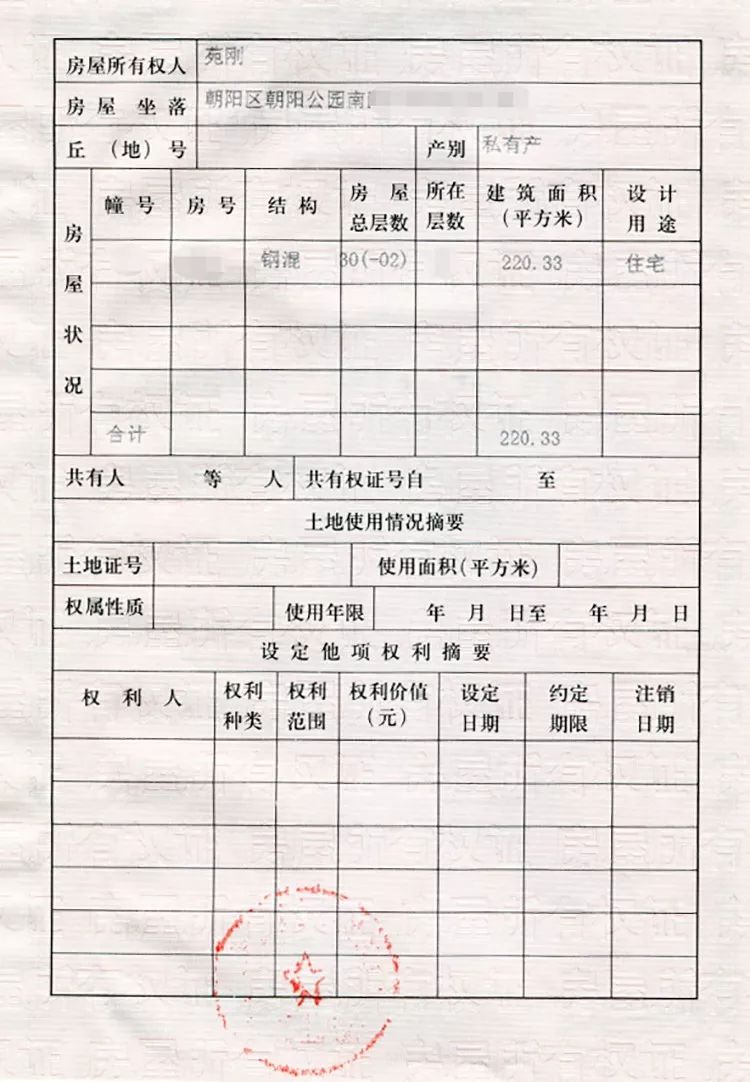 房屋所有权人 苑刚
房屋坐落 朝阳区朝阳公园南
丘（地）号 产别 私有产
房屋状况
幢号 房号 结构 房屋总层数 所在层数 建筑面积（平方米） 设计用途
钢混 30(-02) 220.33 住宅
合计 220.33
共有人 等 人 共有权证号自 至
土地使用情况摘要
土地证号 使用面积（平方米）
权属性质 使用年限 年 月 日至 年 月 日
设定他项权利摘要
权利人 权利种类 权利范围 权利价值（元） 设定日期 约定期限 注销日期